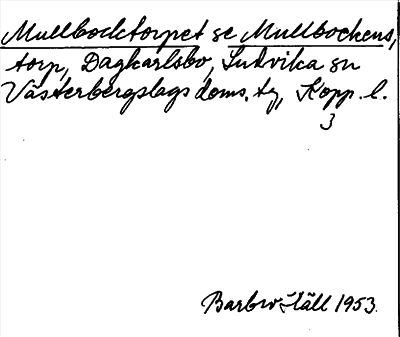 Mullbocktorpet se Mullbockens,
torp, Dagkarlsbo, Ludvika sn
Västerbergslags doms. tg, Kopp. l.
3
Barbro Häll 1953.